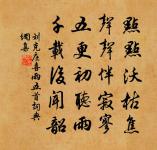 點點沃枯焦
聲聲伴寂寥
五更初聽雨
千載後聞韶
劉克莊喜雨五首詞典
網集